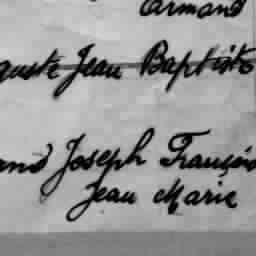 Armand
guste Jean Baptiste
and Joseph François
Jean Marie